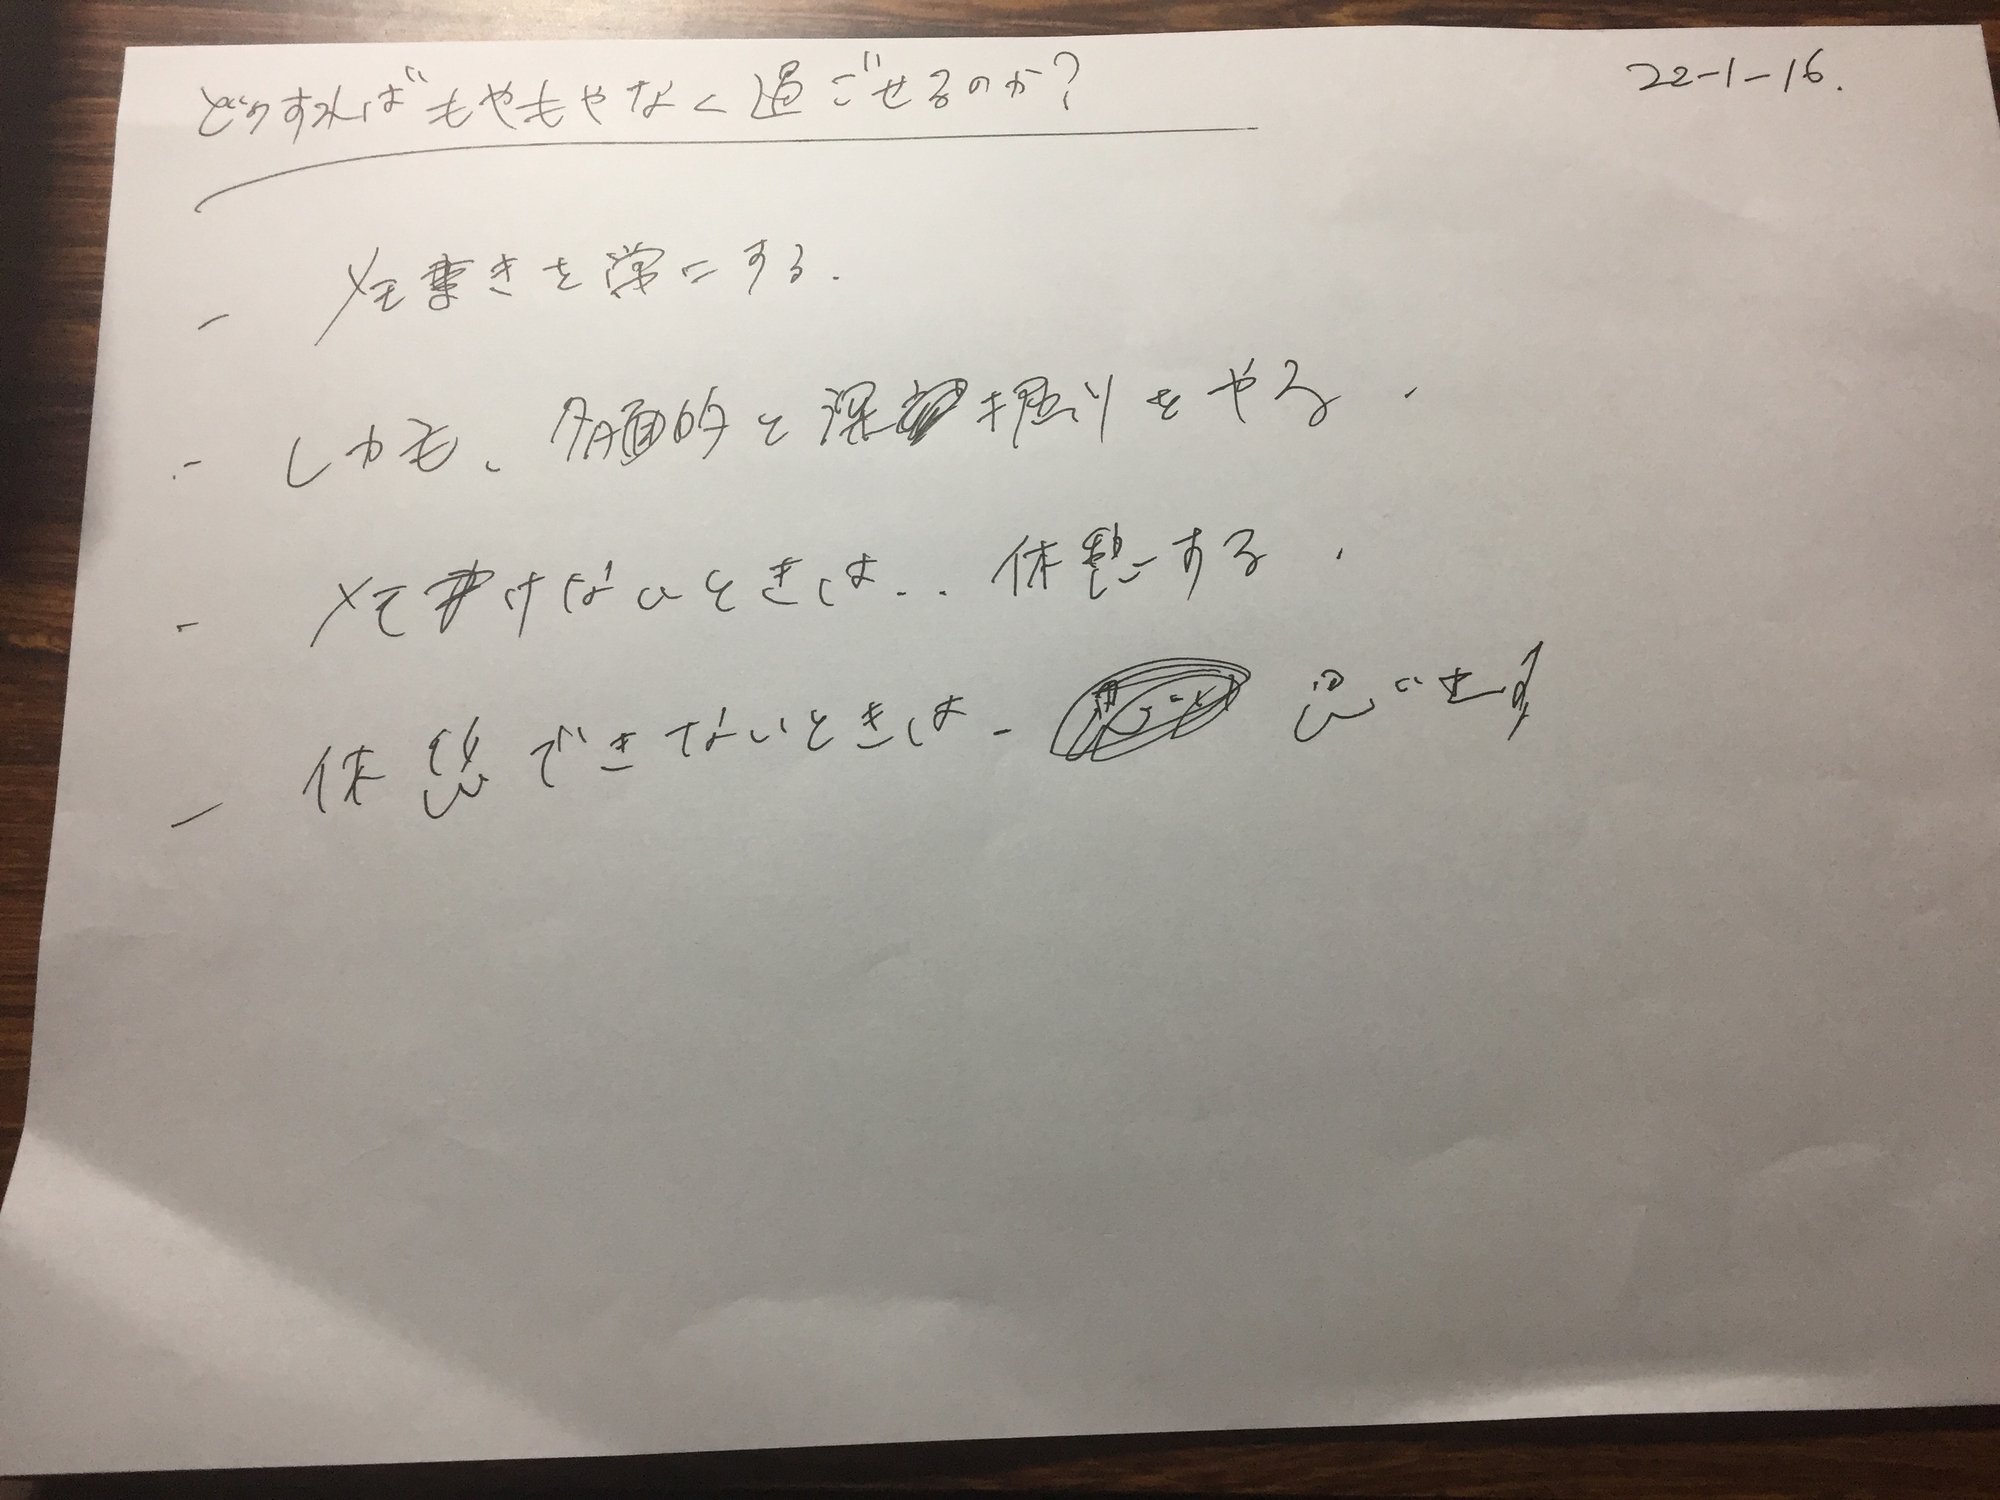 どうすればもやもやなく過ごせるのか?
22-1-16.
- メモ書きを常にする.
- しかも、多面的と深掘りをやる.
- メモ書けないときは.. 休憩する.
- 休憩できないときは-